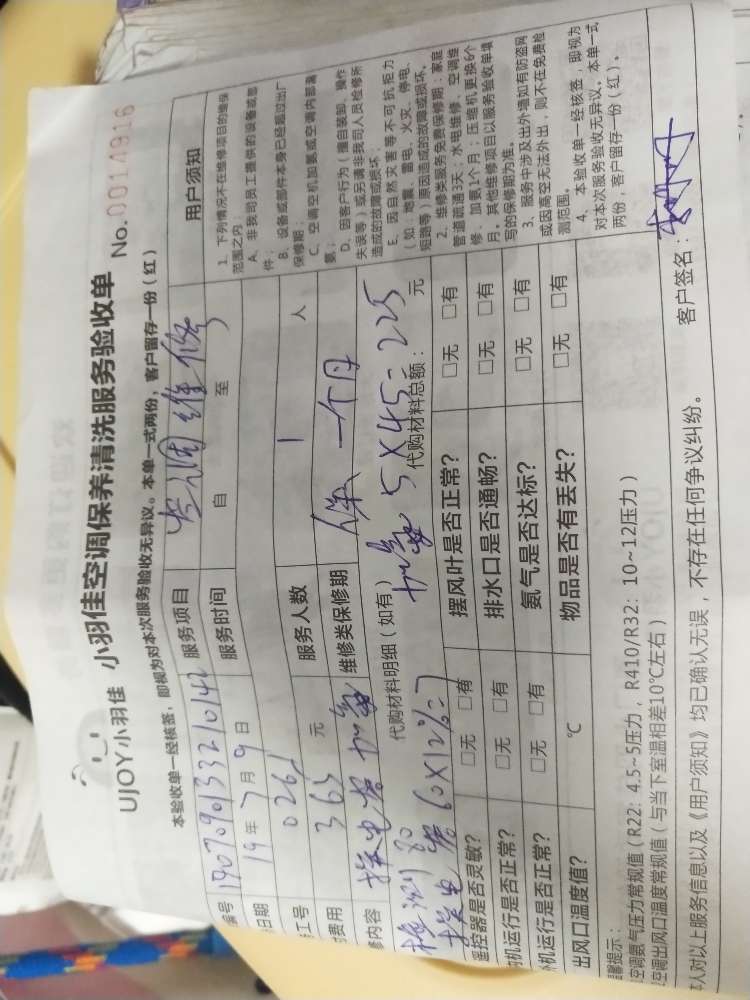 UJOY小羽佳 小羽佳空调保养清洗服务验收单 No.0014916
本验收单一经核签，即视为对本次服务验收无异议。本单一式两份，客户留存一份（红）
编号 190709013321014 服务项目 空调维修
日期 19年7月9日 服务时间 自 至
工号 0261 服务人数 1 人
费用 365 元 维修类保修期 保一个月
内容 换电容 加氟
代购材料明细（如有） 代购材料总额： 元
检测 80 加氟 5×45=225
换电容 60×1
遥控器是否灵敏？ □无 □有 摆风叶是否正常？ □无 □有
机运行是否正常？ □无 □有 排水口是否通畅？ □无 □有
机运行是否正常？ □无 □有 氨气是否达标？ □无 □有
出风口温度值？ ℃ 物品是否有丢失？ □无 □有
用户须知
1、下列情况不在维修项目的维保
范围之内：
A、非我司员工提供的设备或部
件；
B、设备或部件本身已经超过出厂
保修期；
C、空调空机加氨或空调内部漏
氨；
D、因客户行为（擅自装卸、操作
失误等）或另请非我司人员检修所
造成的故障或损坏；
E、因自然灾害等不可抗拒力
（如：地震、雷电、火灾、停电、
短路等）原因造成的故障或损坏。
2、维修类服务免费保修期：家庭
管道疏通3天；水电维修、空调维
修、加氨1个月；压缩机更换6个
月。其他维修项目以服务验收单填
写的保修期为准。
3、服务中涉及出外墙如有防盗网
或因高空无法外出，则不在免费检
测范围。
4、本验收单一经核签，即视为
对本次服务验收无异议。本单一式
两份，客户留存一份（红）。
温馨提示：
空调氨气压力常规值（R22：4.5~5压力，R410/R32：10~12压力）
空调出风口温度常规值（与当下室温相差10℃左右）
本人对以上服务信息以及《用户须知》均已确认无误，不存在任何争议纠纷。
客户签名：